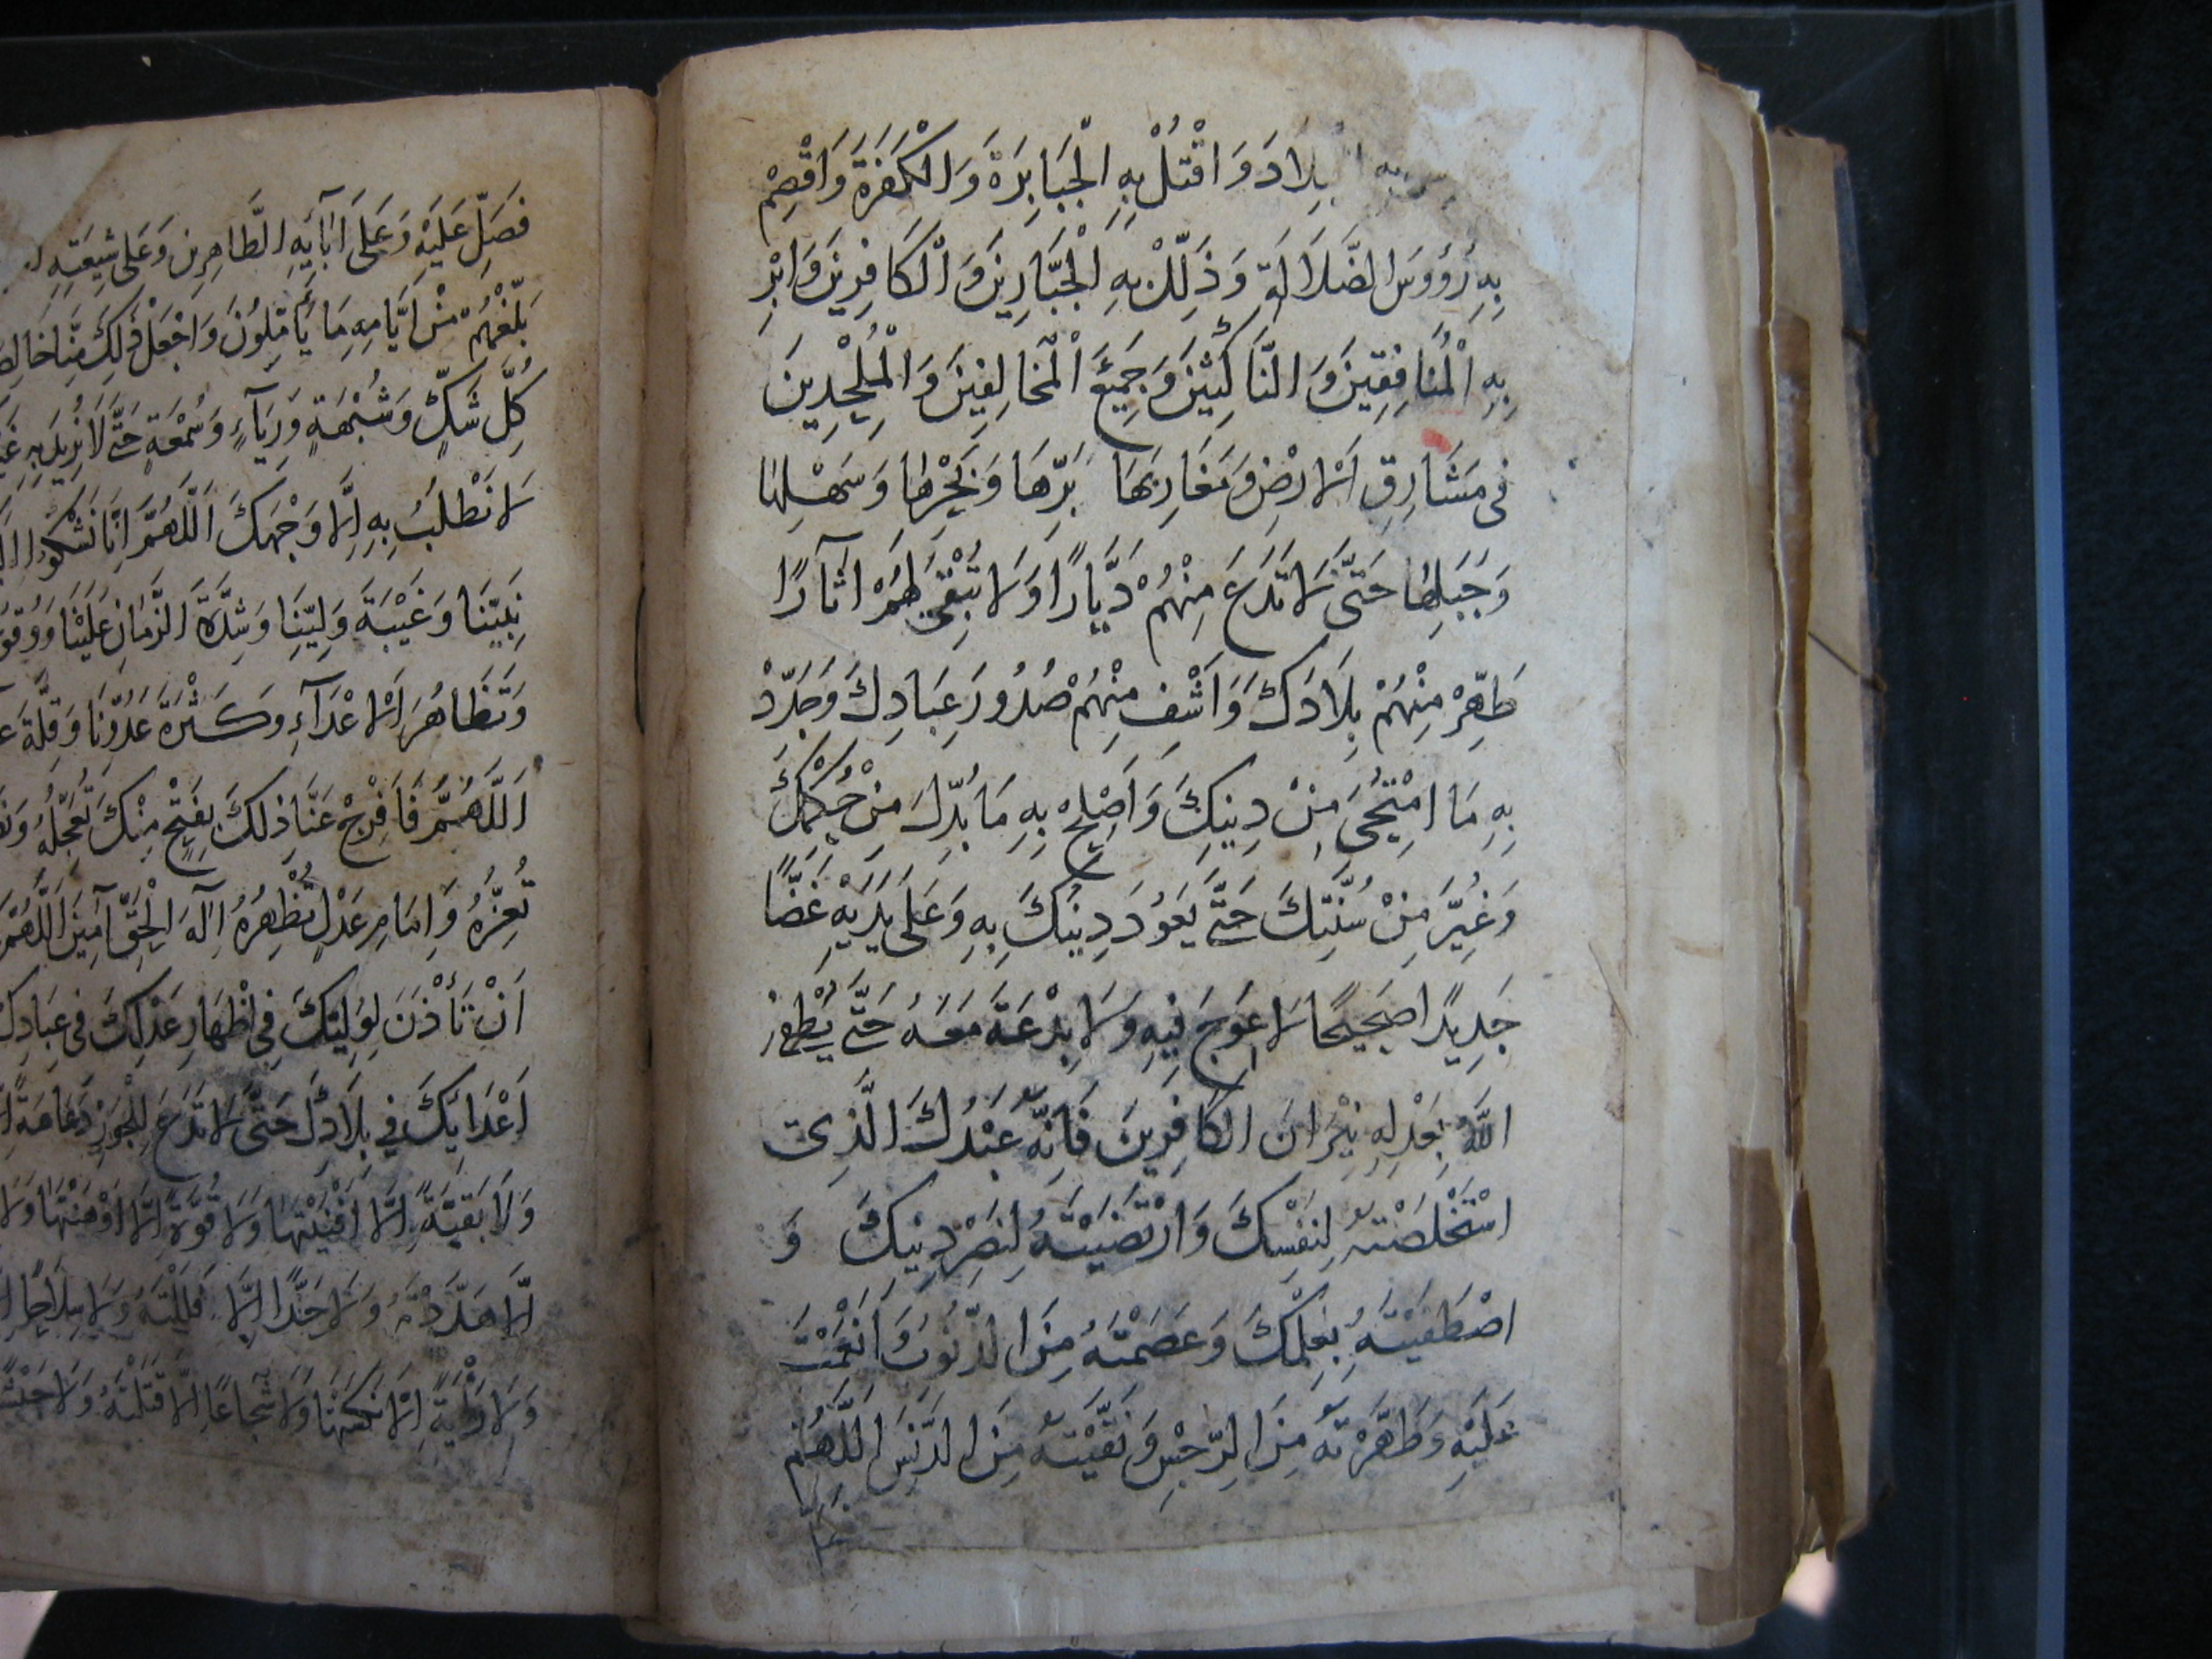 بِلَادَ وَاقْتُلْ بِهِ الْجَبَابِرَةَ وَالْكَفَرَةَ وَاقْصِمْ
بِهِ رُؤُوسَ الضَّلَالَةِ وَذَلِّلْ بِهِ الْجَبَّارِينَ وَالْكَافِرِينَ وَابْرِ
بِهِ الْمُنَافِقِينَ وَالنَّاكِثِينَ وَجَمِيعَ الْمُخَالِفِينَ وَالْمُلْحِدِينَ
فِى مَشَارِقِ الْاَرْضِ وَمَغَارِبِهَا بَرِّهَا وَبَحْرِهَا وَسَهْلِهَا
وَجَبَلِهَا حَتَّى لَا تَدَعَ مِنْهُمْ دَيَّارًا وَلَا تُبْقِىَ لَهُمْ اٰثَارًا
طَهِّرْ مِنْهُمْ بِلَادَكَ وَاشْفِ مِنْهُمْ صُدُورَ عِبَادِكَ وَجَدِّدْ
بِهِ مَا امْتَحٰى مِنْ دِينِكَ وَاَصْلِحْ بِهِ مَا بُدِّلَ مِنْ حُكْمِكَ
وَغُيِّرَ مِنْ سُنَّتِكَ حَتَّى يَعُودَ دِينُكَ بِهِ وَعَلَى يَدَيْهِ غَضًّا
جَدِيدًا صَحِيحًا لَا عِوَجَ فِيهِ وَلَا بِدْعَةَ مَعَهُ حَتَّى يُطْفِئَ
اللّٰهُ بِعَدْلِهِ نِيْرَانَ الْكَافِرِينَ فَاِنَّهُ عَبْدُكَ الَّذِى
اسْتَخْلَصْتَهُ لِنَفْسِكَ وَارْتَضَيْتَهُ لِنَصْرِ دِينِكَ وَ
اصْطَفَيْتَهُ بِعِلْمِكَ وَعَصَمْتَهُ مِنَ الذُّنُوبِ وَاَنْعَمْتَ
عَلَيْهِ وَطَهَّرْتَهُ مِنَ الرِّجْسِ وَنَقَّيْتَهُ مِنَ الدَّنَسِ اَللّٰهُمَّ
فَصَلِّ عَلَيْهِ وَعَلَى اٰبَآئِهِ الطَّاهِرِينَ وَعَلَى شِيعَتِهِ
بَلِّغْهُمْ مِنْ اَيَّامِهِ مَا يَأْمُلُونَ وَاجْعَلْ ذٰلِكَ مِنَّا
كُلِّ شَكٍّ وَشُبْهَةٍ وَرِيَآءٍ وَسُمْعَةٍ حَتَّى لَا نُرِيدَ بِهِ
لَا نَطْلُبَ بِهِ اِلَّا وَجْهَكَ اَللّٰهُمَّ اِنَّا نَشْكُو
نَبِيِّنَا وَغَيْبَةَ وَلِيِّنَا وَشِدَّةَ الزَّمَانِ عَلَيْنَا
وَتَظَاهُرَ الْاَعْدَآءِ وَكَثْرَةَ عَدُوِّنَا وَقِلَّةَ
اَللّٰهُمَّ فَافْرِجْ عَنَّا ذٰلِكَ بِفَتْحٍ مِنْكَ تُعَجِّلُهُ
تُعِزُّهُ وَاِمَامِ عَدْلٍ تُظْهِرُهُ اِلٰهَ الْحَقِّ آمِينَ اَللّٰهُمَّ
اَنْ تَأْذَنَ لِوَلِيِّكَ فِى اِظْهَارِ عَدْلِكَ فِى عِبَادِكَ
اَعْدَائِكَ فِى بِلَادِكَ حَتَّى لَا تَدَعَ لِلْجَوْرِ دَعَامَةً
وَلَا بَقِيَّةً اِلَّا اَفْنَيْتَهَا وَلَا قُوَّةً اِلَّا اَوْهَنْتَهَا وَلَا
اِلَّا هَدَدْتَهُ وَلَا حَدًّا اِلَّا فَلَلْتَهُ وَلَا سِلَاحًا
وَلَا رَايَةً اِلَّا نَكَسْتَهَا وَلَا شُجَاعًا اِلَّا قَتَلْتَهُ وَلَا